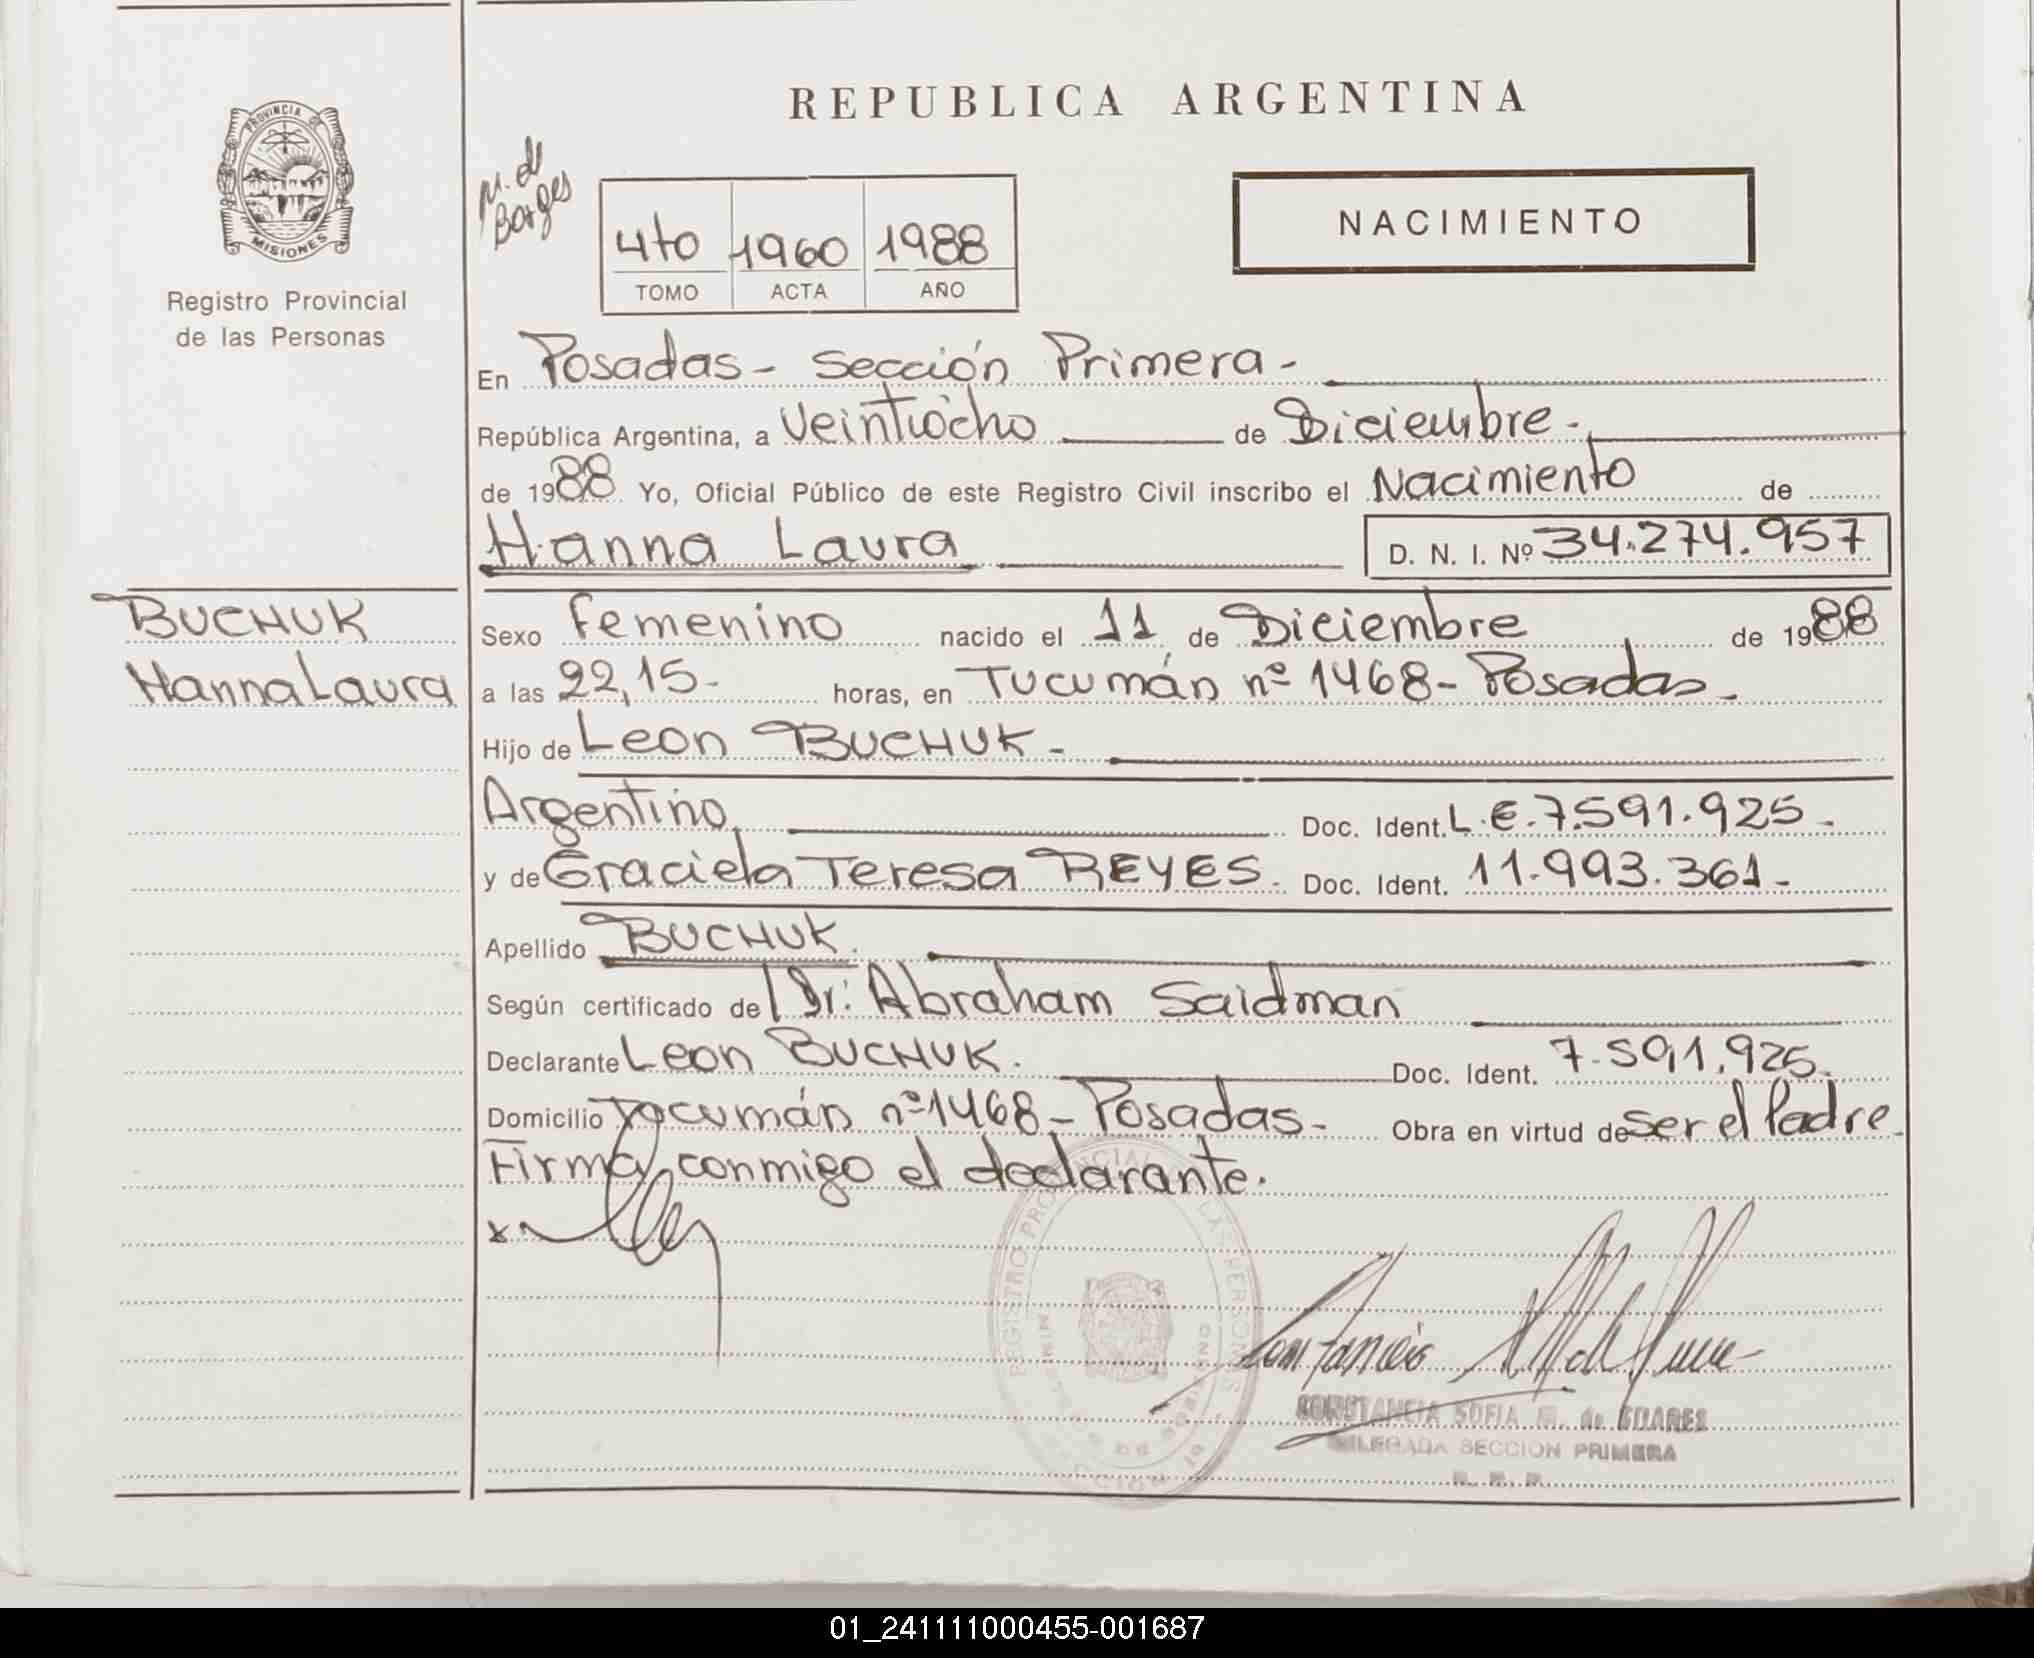 REPUBLICA ARGENTINA
PROVINCIA DE
MISIONES
Registro Provincial
de las Personas
M. de
Borges
4to 1960 1988
TOMO ACTA AÑO
NACIMIENTO
En Posadas - Sección Primera -
República Argentina, a Veintiocho de Diciembre -
de 1988 Yo, Oficial Público de este Registro Civil inscribo el Nacimiento de
Hanna Laura D. N. I. Nº 34.274.957
BUCHUK
Hanna Laura
Sexo Femenino nacido el 11 de Diciembre de 1988
a las 22,15- horas, en Tucumán nº 1468 - Posadas -
Hijo de Leon BUCHUK -
Argentino Doc. Ident. L.E. 7.591.925 -
y de Graciela Teresa REYES. Doc. Ident. 11.993.361 -
Apellido BUCHUK.
Según certificado de Dr. Abraham Saidman
Declarante Leon BUCHUK. Doc. Ident. 7.591.925.
Domicilio Tucumán nº 1468 - Posadas - Obra en virtud de ser el Padre.
Firma conmigo el declarante.
x
REGISTRO PROVINCIAL DE LAS PERSONAS
CONSTANCIA SOFIA M. de SOARES
DELEGADA SECCION PRIMERA
01_241111000455-001687